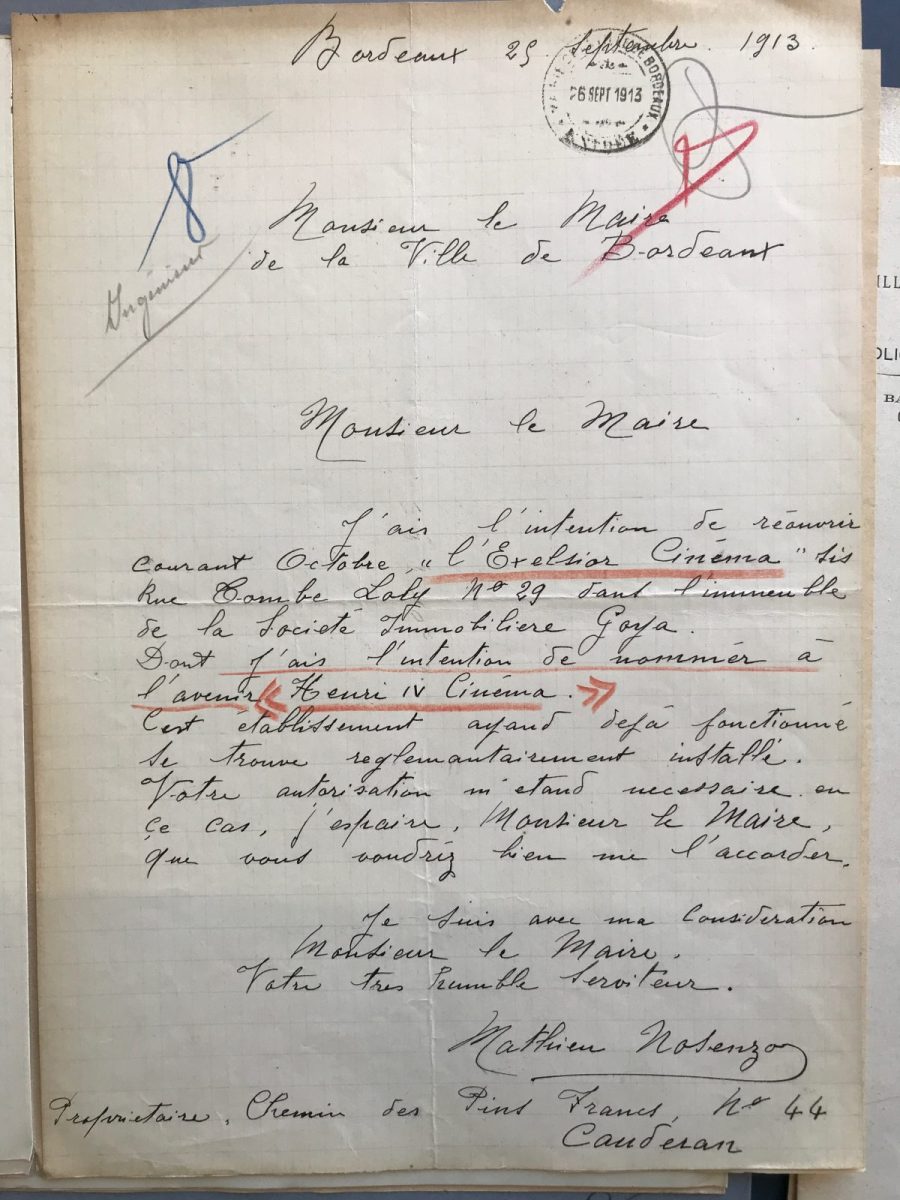 Bordeaux 25 Septembre 1913
BORDEAUX
26 SEPT 1913
ENTRÉE
Ingénieur
Monsieur le Maire
de la Ville de Bordeaux
Monsieur le Maire
J'ais l'intention de réouvrir
courant Octobre, "l'Exelsior Cinéma" sis
Rue Combe Laly Nº 29 dans l'immeuble
de la Societé Immobiliere Goya.
Dont j'ais l'intention de nommér à
l'avenir « Henri IV Cinéma. »
Cest établissement ayand dejà fonctionné
se trouve reglemantairement installé.
Votre autorisation m'etand necessaire en
çe cas, j'espaire, Monsieur le Maire,
que vous voudréz bien me l'accorder.
Je suis avec ma Consideration
Monsieur le Maire.
Votre tres humble Serviteur.
Mathieu Nosenzo
Proprietaire, Chemin des Pins Francs, Nº 44
Caudéran
ILL
OLI
BA